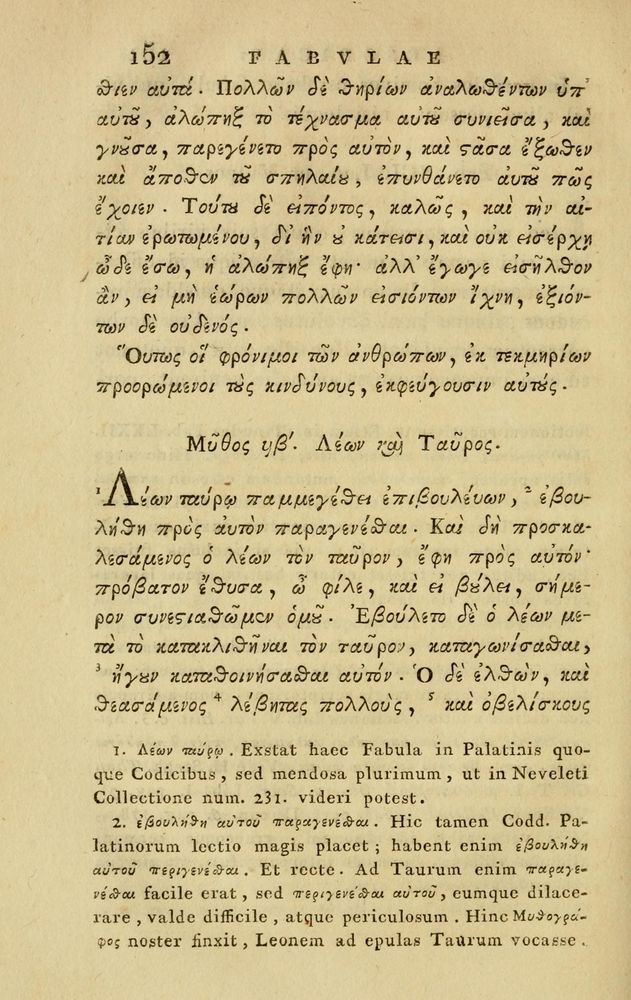 152 FABVLAE
θιεν αυτά. Πολλῶν δὲ θηρίων ἀναλωθέντων ὑπ'
αυτοῦ, ἀλώπηξ τὸ τέχνασμα αυτοῦ συνιεῖσα, καὶ
γνοῦσα, παρεγένετο πρὸς αυτὸν, καὶ ϛᾶσα ἔξωθεν
καὶ ἄποθεν τοῦ σπηλαίου, ἐπυνθάνετο αυτοῦ πῶς
ἔχοιεν. Τούτου δὲ ειπόντος, καλῶς, καὶ τὴν αι-
τίαν ἐρωτωμένου, δι ἣν οὐ κάτεισι, καὶ ουκ εισέρχη
ὧδε ἔσω, ἡ ἀλώπηξ ἔφη· ἀλλ' ἔγωγε εισῆλθον
ἂν, ει μὴ ἑώρων πολλῶν εισιόντων ἴχνη, ἐξιόν-
των δὲ ουδενός.
Ὅυτως οἱ φρόνιμοι τῶν ἀνθρώπων, ἐκ τεκμηρίων
προορώμενοι τοὺς κινδύνους, ἐκφεύγουσιν αυτούς.
Μῦθος οβ'. Λέων καὶ Ταῦρος.
¹ Λέων ταύρῳ παμμεγέθει ἐπιβουλέυων, ² ἐβου-
λήθη πρὸς ἀυτὸν παραγενέσθαι. Καὶ δὴ προσκα-
λεσάμενος ὁ λέων τὸν ταῦρον, ἔφη πρὸς αυτόν·
πρόβατον ἔθυσα, ὦ φίλε, καὶ ει βούλει, σήμε-
ρον συνεϛιαθῶμεν ὁμοῦ. Ἐβούλετο δὲ ὁ λέων με-
τὰ τὸ κατακλιθῆναι τὸν ταῦρον, καταγωνίσασθαι,
³ ἤγουν καταθοινήσασθαι αυτόν. Ὁ δὲ ἐλθὼν, καὶ
θεασάμενος ⁴ λέβητας πολλοὺς, ⁵ καὶ ὀβελίσκους
1. Λέων ταύρῳ. Exstat haec Fabula in Palatinis quo-
que Codicibus, sed mendosa plurimum, ut in Neveleti
Collectione num. 231. videri potest.
2. ἐβουλήθη αὐτοῦ παραγενέσθαι. Hic tamen Codd. Pa-
latinorum lectio magis placet; habent enim ἐβουλήθη
αὐτοῦ περιγενέσθαι. Et recte. Ad Taurum enim παραγε-
νέσθαι facile erat, sed περιγενέσθαι αὐτοῦ, eumque dilace-
rare, valde difficile, atque periculosum. Hinc Μυθογρά-
φος noster finxit, Leonem ad epulas Taurum vocasse.